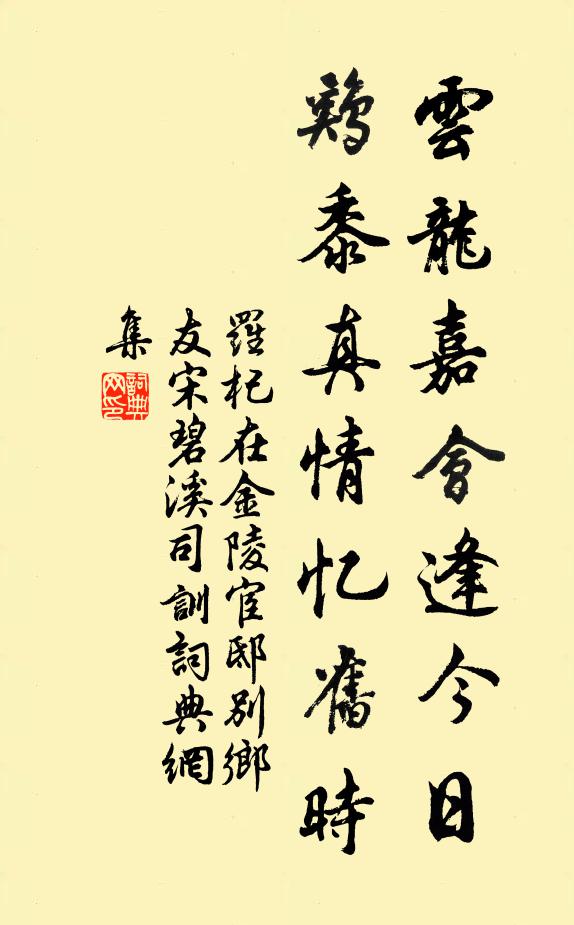 雲龍嘉會逢今日
鷄黍真情忆舊時
羅杞在金陵宦邸别鄉
友宋碧溪司訓詞典網
集
詞典
网印